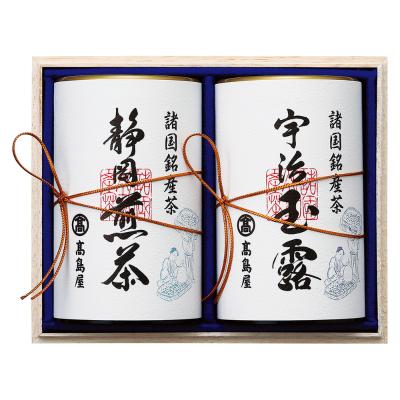 諸国銘産茶
静岡煎茶
高
髙島屋
諸国銘産茶
宇治玉露
高
髙島屋